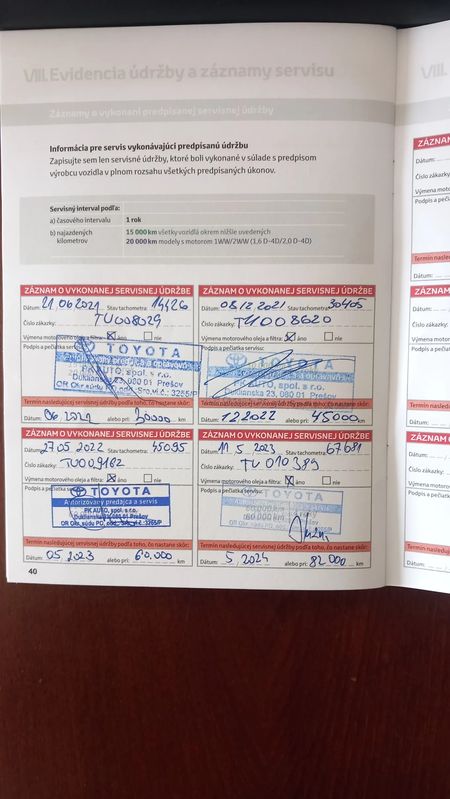 VIII. Evidencia údržby a záznamy servisu
VIII.
Záznamy o vykonaní predpísanej servisnej údržby
Informácia pre servis vykonávajúci predpísanú údržbu
Zapisujte sem len servisné údržby, ktoré boli vykonané v súlade s predpisom
výrobcu vozidla v plnom rozsahu všetkých predpísaných úkonov.
Servisný interval podľa:
a) časového intervalu 1 rok
b) najazdených kilometrov 15 000 km všetky vozidlá okrem nižšie uvedených
20 000 km modely s motorom 1WW/2WW (1,6 D-4D/2,0 D-4D)
ZÁZNAM O VYKONANEJ SERVISNEJ ÚDRŽBE
Dátum: 21 06 2021 Stav tachometra: 14426
Číslo zákazky: TU008029
Výmena motorového oleja a filtra: áno nie
Podpis a pečiatka servisu:
TOYOTA
Autorizovaný predajca a opravovňa
PK AUTO, spol. s r.o.
Duklianska 23, 080 01 Prešov
Termín nasledujúcej servisnej údržby podľa toho, čo nastane skôr:
Dátum: 06 2022 alebo pri: 30000 km
ZÁZNAM O VYKONANEJ SERVISNEJ ÚDRŽBE
Dátum: 08.12.2021 Stav tachometra: 30405
Číslo zákazky: TU008620
Výmena motorového oleja a filtra: áno nie
Podpis a pečiatka servisu:
TOYOTA
PK AUTO, spol. s r.o.
Duklianska 23, 080 01 Prešov
Termín nasledujúcej servisnej údržby podľa toho, čo nastane skôr:
Dátum: 12.2022 alebo pri: 45000 km
ZÁZNAM O VYKONANEJ SERVISNEJ ÚDRŽBE
Dátum: 27 05 2022 Stav tachometra: 45095
Číslo zákazky: TU009182
Výmena motorového oleja a filtra: áno nie
Podpis a pečiatka servisu:
TOYOTA
Autorizovaný predajca a servis
PK AUTO, spol. s r.o.
Duklianska 23, 080 01 Prešov
Termín nasledujúcej servisnej údržby podľa toho, čo nastane skôr:
Dátum: 05 2023 alebo pri: 60.000 km
ZÁZNAM O VYKONANEJ SERVISNEJ ÚDRŽBE
Dátum: 11 5 2023 Stav tachometra: 67681
Číslo zákazky: TU 010389
Výmena motorového oleja a filtra: áno nie
Podpis a pečiatka servisu:
Termín nasledujúcej servisnej údržby podľa toho, čo nastane skôr:
Dátum: 5. 2024 alebo pri: 82 000 km
40
ZÁZNAM
Dátum:
Číslo zákazky:
Výmena motoro
Podpis a pečiat
Termín nasled
Dátum:
ZÁZNAM O
Dátum:
Číslo zákazky:
Výmena motorov
Podpis a pečiatk
Termín nasledu
Dátum:
ZÁZNAM O
Dátum:
Číslo zákazky:
Výmena motorové
Podpis a pečiatka
Termín nasleduj
Dátum: